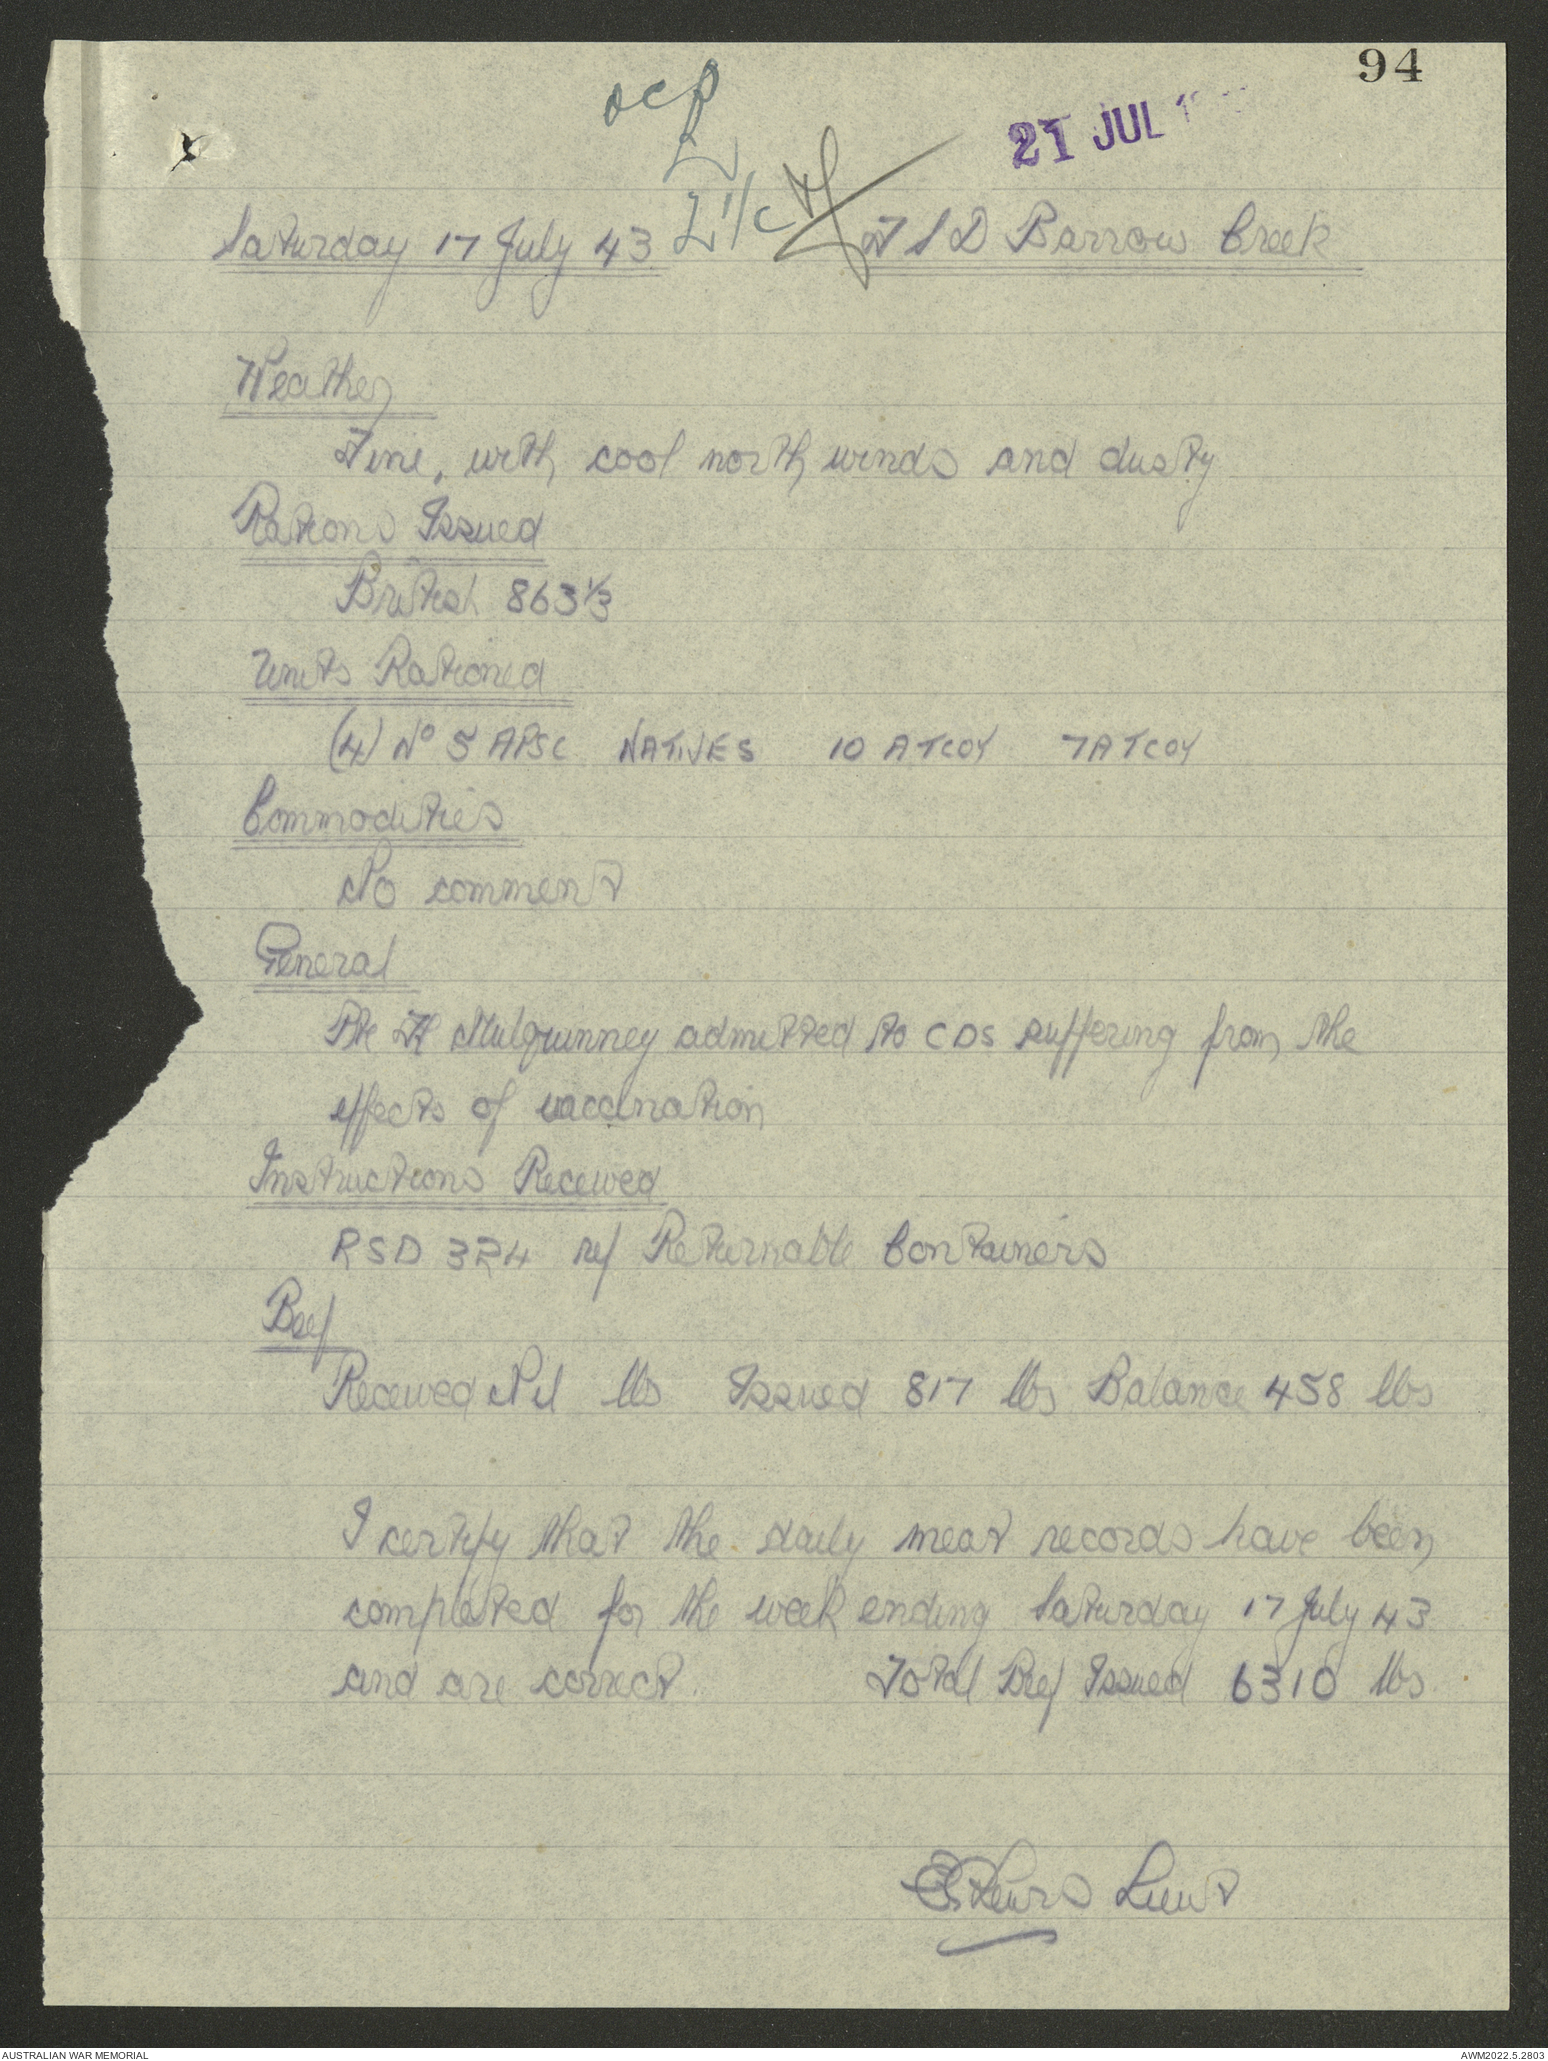 94
OCP
21 JUL
Saturday 17 July 43 F S D Barrow Creek
Weather
Fine, with cool north winds and dusty
Rations Issued
British 863 1/3
Units Rationed
(4) No 5 APSC NATIVES 10 A T COY 7 A T COY
Commodities
No comment
General
Pte Mulquinney admitted to CDS suffering from the
effects of vaccination
Instructions Received
RSD 324 re/ Returnable Containers
Beef
Received Nil lbs Issued 817 lbs Balance 458 lbs
I certify that the daily meat records have been
completed for the week ending Saturday 17 July 43
and are correct. Total Beef Issued 6310 lbs.
Lieut
AUSTRALIAN WAR MEMORIAL
AWM2022.5.2803